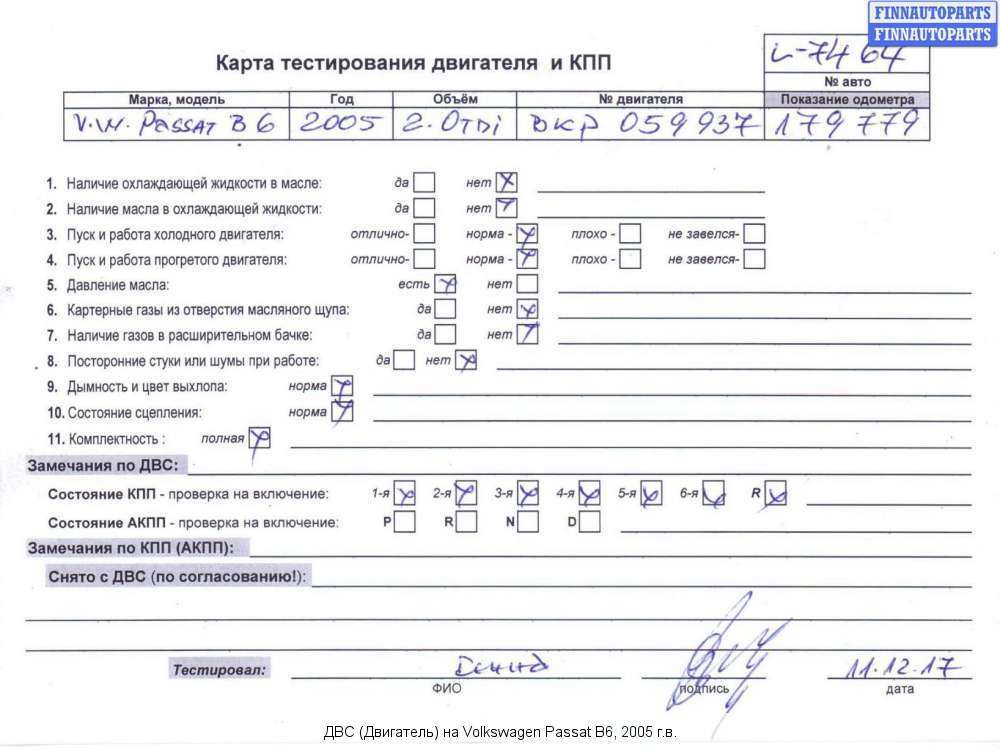 FINNAUTOPARTS
FINNAUTOPARTS
L-7464
Карта тестирования двигателя и КПП
№ авто
Марка, модель Год Объём № двигателя Показание одометра
V.W. Passat B6 2005 2.0TDi BKP 059937 179779
1. Наличие охлаждающей жидкости в масле: да нет X
2. Наличие масла в охлаждающей жидкости: да нет
3. Пуск и работа холодного двигателя: отлично- норма - плохо - не завелся-
4. Пуск и работа прогретого двигателя: отлично- норма - плохо - не завелся-
5. Давление масла: есть нет
6. Картерные газы из отверстия масляного щупа: да нет
7. Наличие газов в расширительном бачке: да нет
8. Посторонние стуки или шумы при работе: да нет
9. Дымность и цвет выхлопа: норма
10. Состояние сцепления: норма
11. Комплектность : полная
Замечания по ДВС:
Состояние КПП - проверка на включение: 1-я 2-я 3-я 4-я 5-я 6-я R
Состояние АКПП - проверка на включение: P R N D
Замечания по КПП (АКПП):
Снято с ДВС (по согласованию!):
Тестировал: 11.12.17
ФИО подпись дата
ДВС (Двигатель) на Volkswagen Passat B6, 2005 г.в.